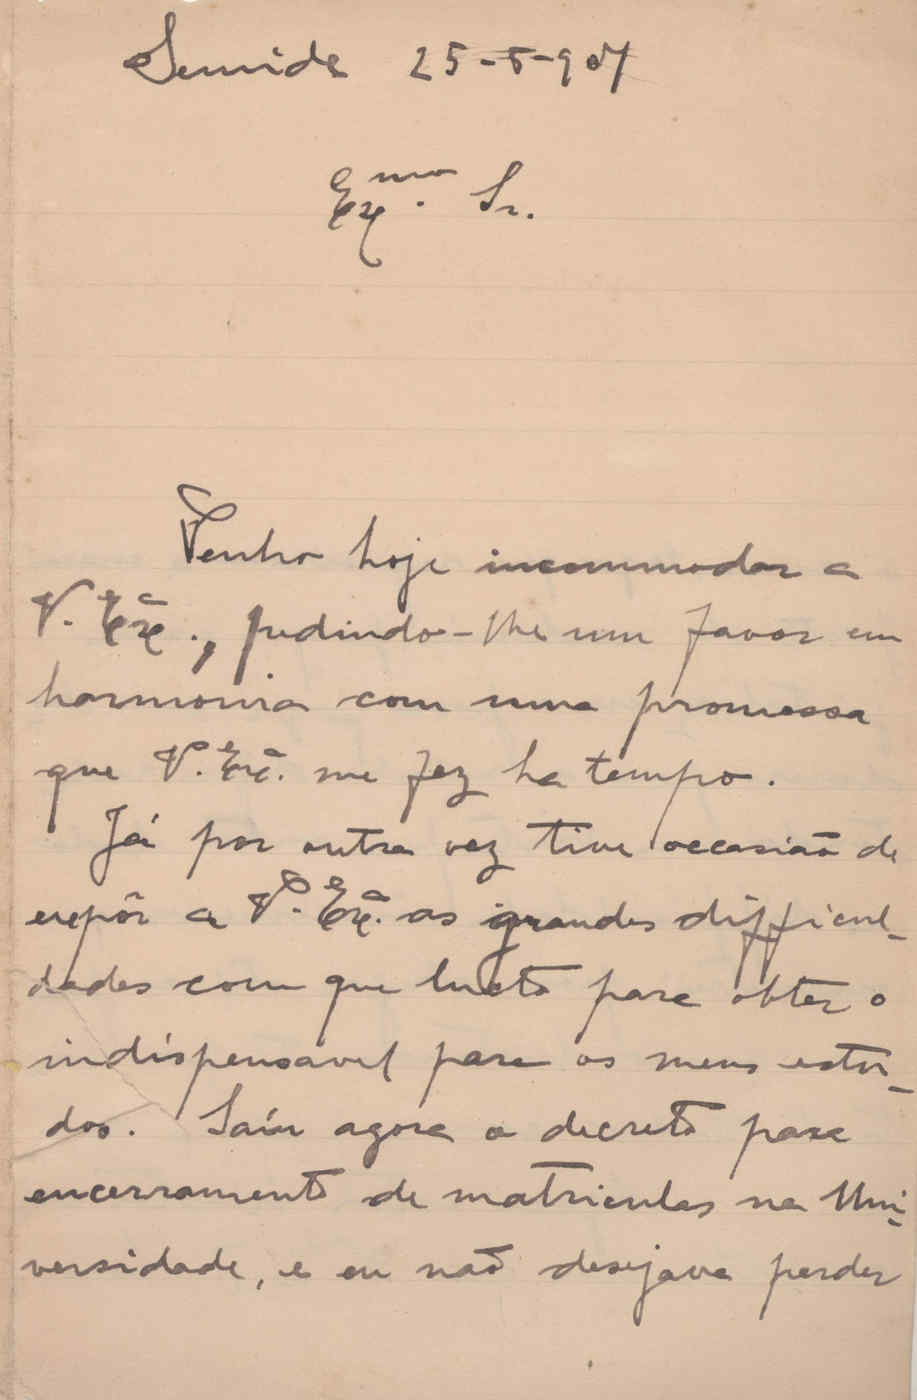 Semide 25-5-907
Ex.mo Sr.
Venho hoje incommodar a
V. Exª., pedindo-lhe um favor em
harmonia com uma promessa
que V. Exª. me fez ha tempo.
Já por outra vez tive occasião de
expôr a V. Exª. as grandes difficul-
dades com que lucto para obter o
indispensavel para os meus estu-
dos. Saíu agora o decreto para
encerramento de matriculas na Uni-
versidade, e eu não desejava perder